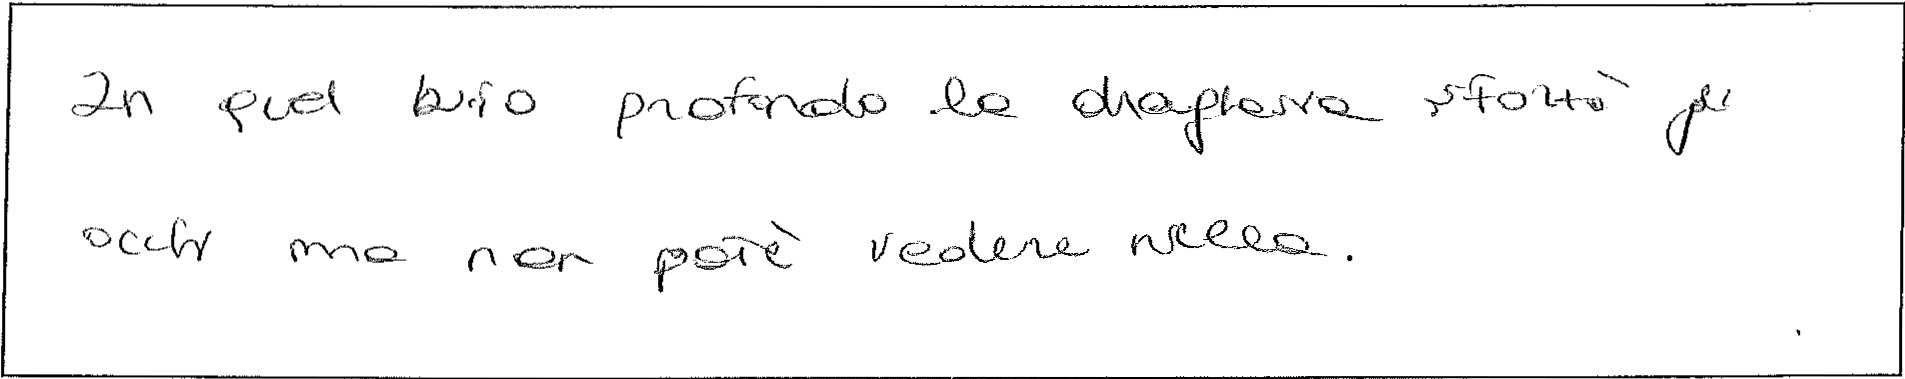 In quel buio profondo la draghessa sforzò gli
occhi ma non poté vedere nulla.